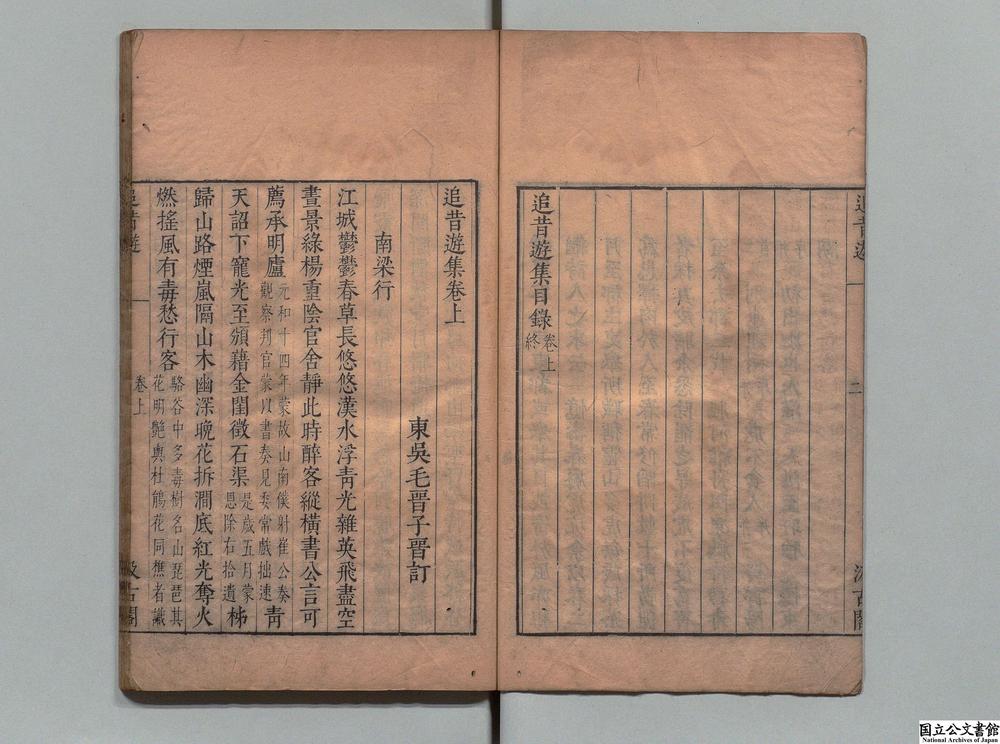 追昔遊集目錄 卷上終
追昔遊 二
追昔遊集卷上
東吳毛晉子晉訂
南梁行
江城鬱鬱春草長悠悠漢水浮靑光雜英飛盡空
晝景綠楊重陰官舍靜此時醉客縱橫書公言可
薦承明廬 元和十四年蒙故山南僕射崔公奏
觀察判官蒙以書奏見委常戲拙速 靑
天詔下寵光至頒藉金閨徵石渠 是歲五月蒙
恩除右拾遺 㭰
歸山路煙嵐隔山木幽深晚花拆澗底紅光奪火
燃搖風有毒愁行客 駱谷中多毒樹名山琵琶其
花明艷與杜鵑花同樵者識
追昔遊 一 卷上 汲古閣
国立公文書館
National Archives of Japan